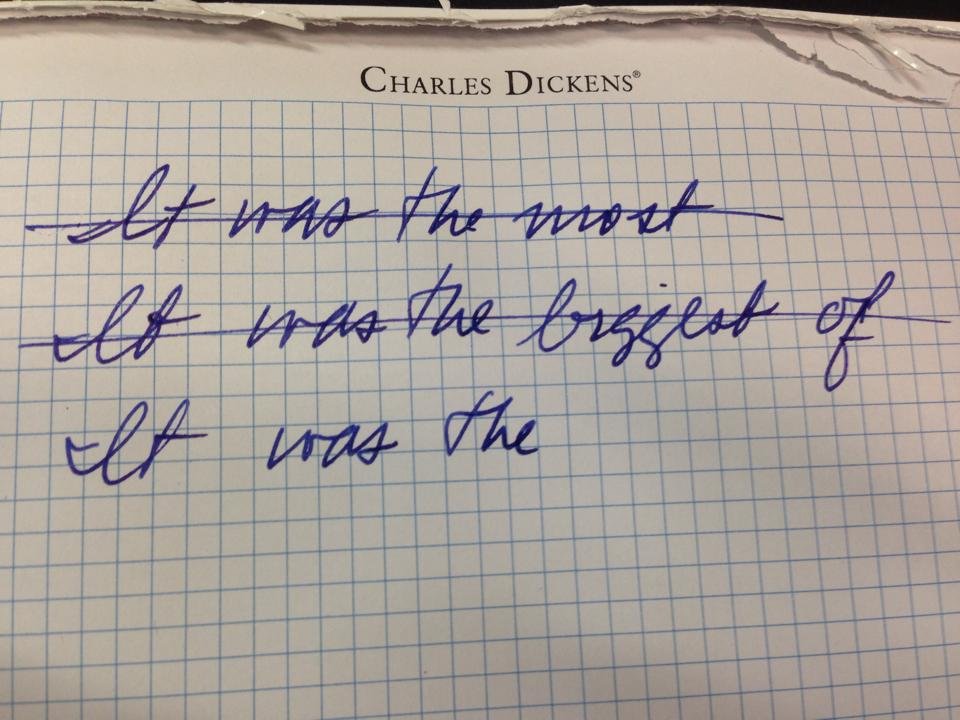 CHARLES DICKENS®
It was the most
It was the biggest of
It was the